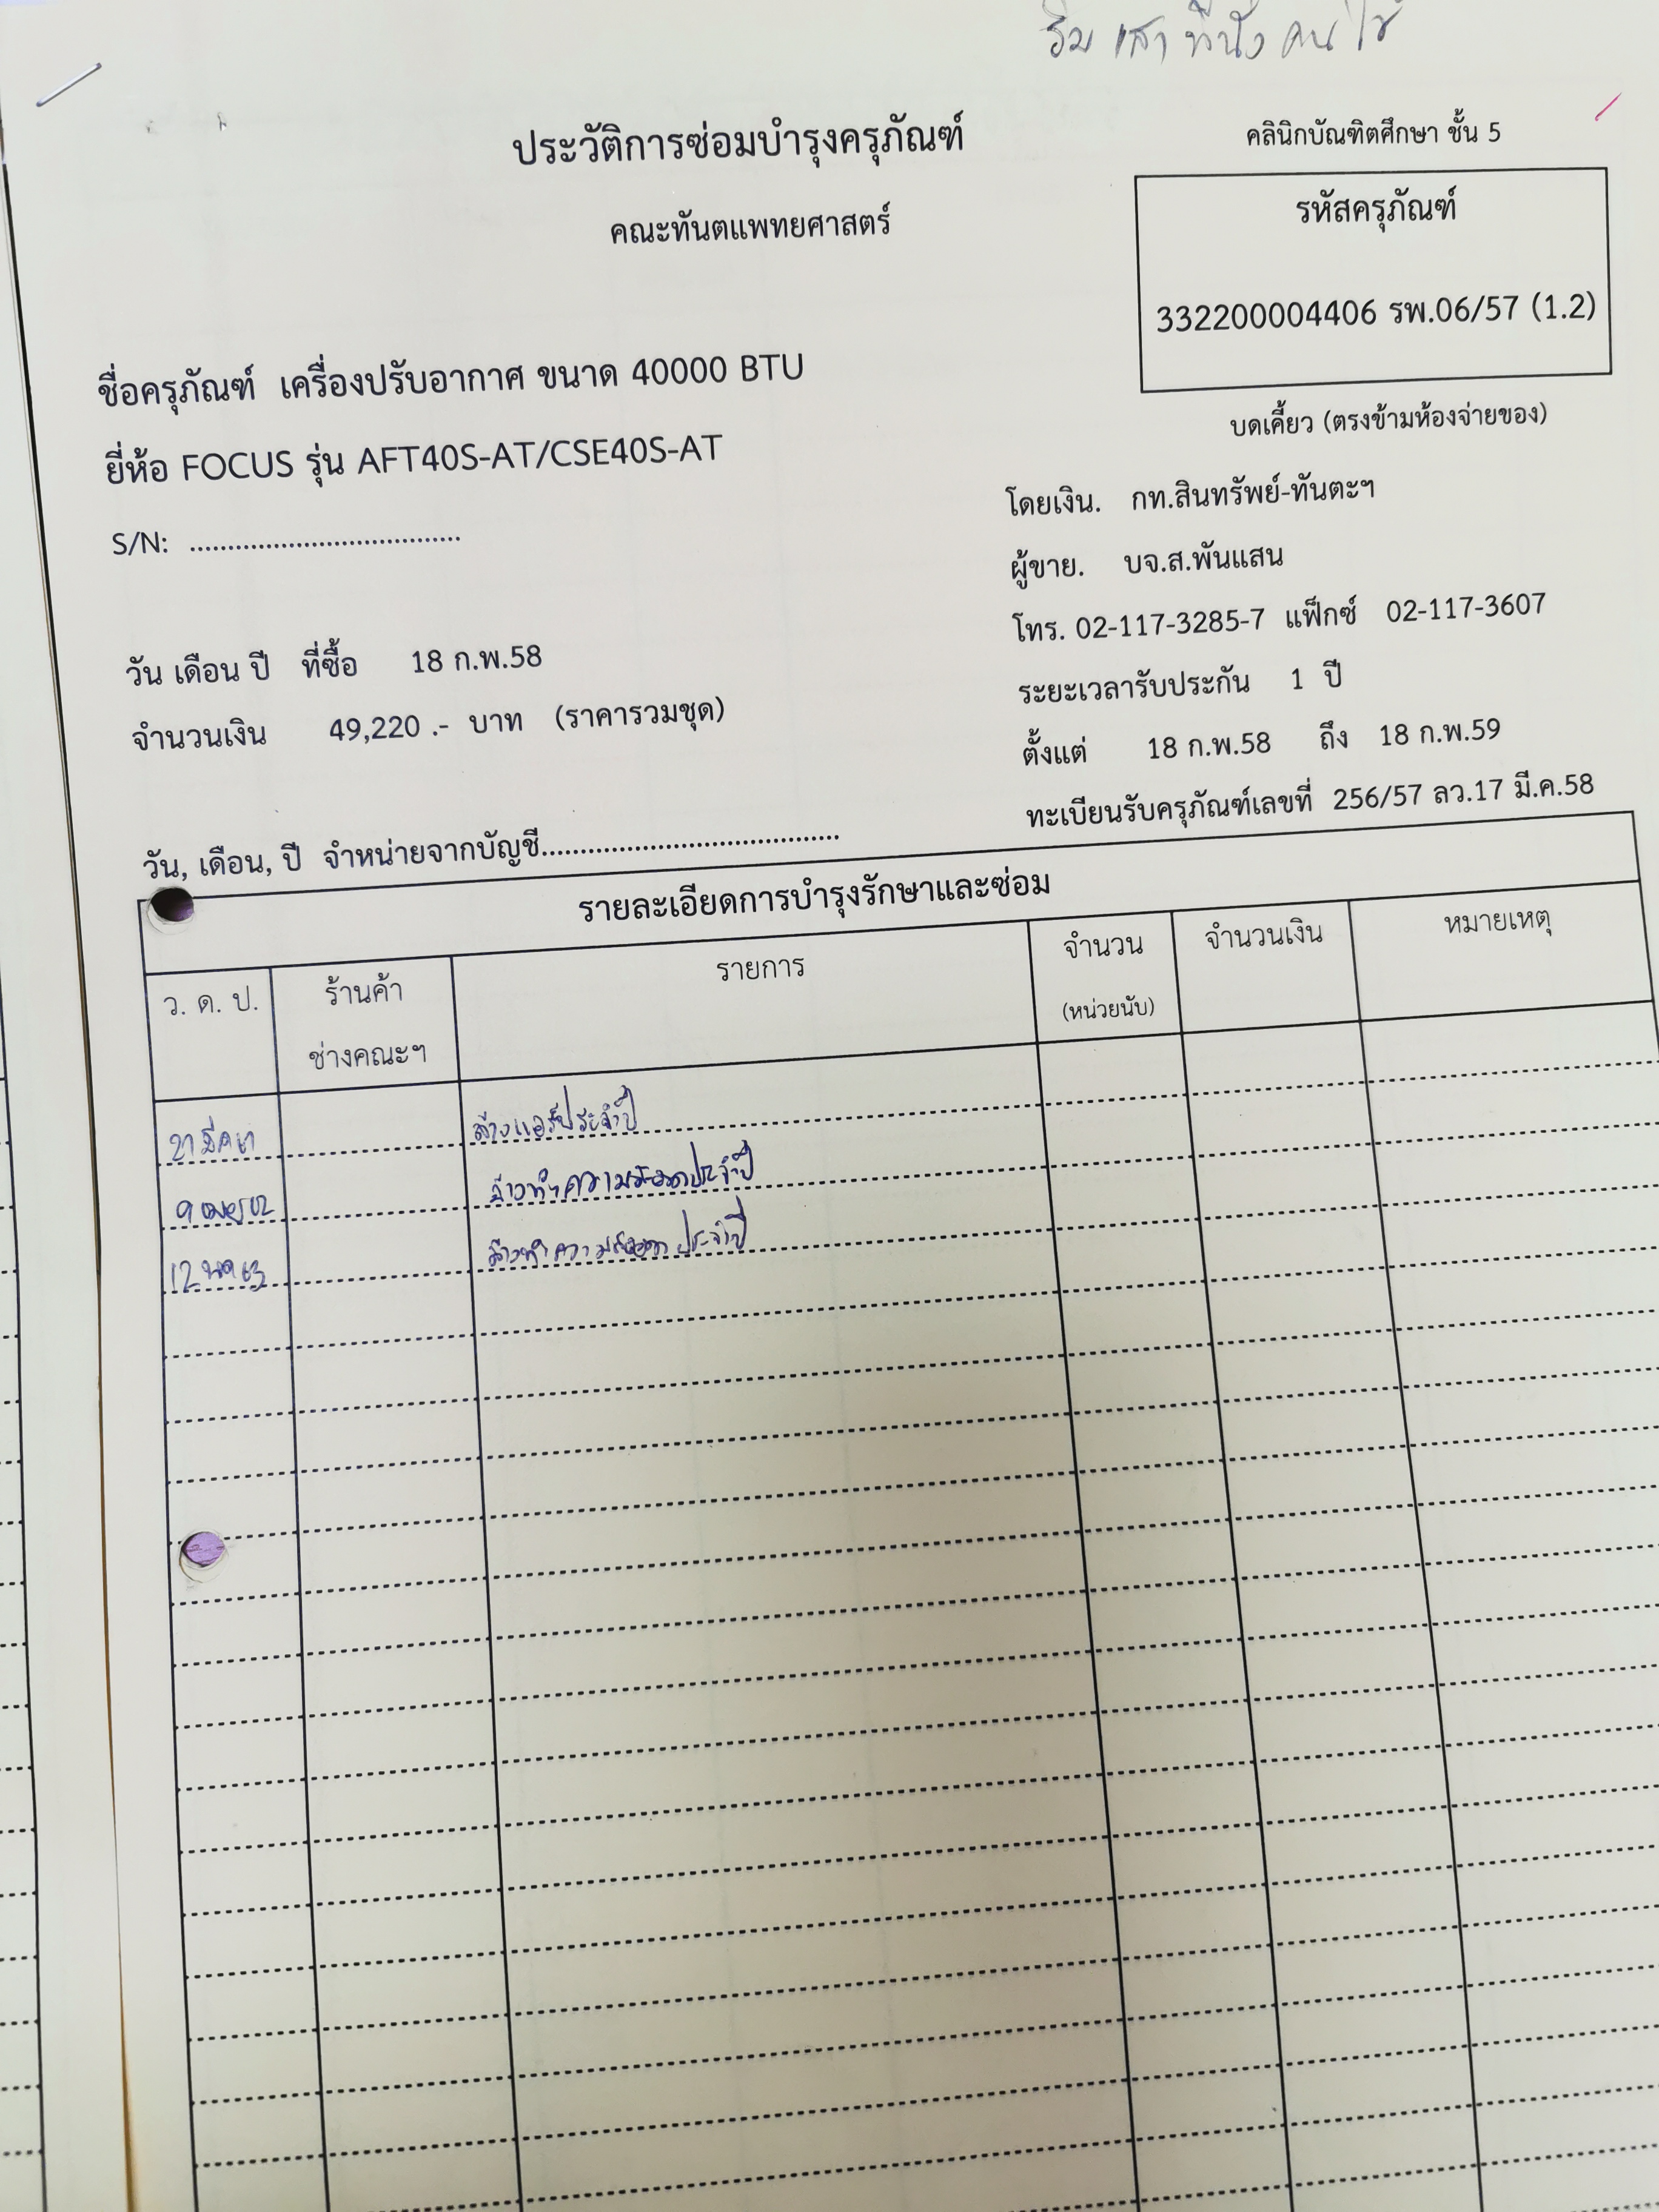 ริมเสา ที่นั่ง คนไข้
ประวัติการซ่อมบำรุงครุภัณฑ์
คลินิกบัณฑิตศึกษา ชั้น 5
คณะทันตแพทยศาสตร์
รหัสครุภัณฑ์
332200004406 รพ.06/57 (1.2)
บดเคี้ยว (ตรงข้ามห้องจ่ายของ)
ชื่อครุภัณฑ์ เครื่องปรับอากาศ ขนาด 40000 BTU
ยี่ห้อ FOCUS รุ่น AFT40S-AT/CSE40S-AT
S/N: ....................................
โดยเงิน. กท.สินทรัพย์-ทันตะฯ
ผู้ขาย. บจ.ส.พันแสน
โทร. 02-117-3285-7 แฟ็กซ์ 02-117-3607
วัน เดือน ปี ที่ซื้อ 18 ก.พ.58
ระยะเวลารับประกัน 1 ปี
จำนวนเงิน 49,220 .- บาท (ราคารวมชุด)
ตั้งแต่ 18 ก.พ.58 ถึง 18 ก.พ.59
ทะเบียนรับครุภัณฑ์เลขที่ 256/57 ลว.17 มี.ค.58
วัน, เดือน, ปี จำหน่ายจากบัญชี......................................
รายละเอียดการบำรุงรักษาและซ่อม
ว. ด. ป.
ร้านค้า
ช่างคณะฯ
รายการ
จำนวน
(หน่วยนับ)
จำนวนเงิน
หมายเหตุ
21 มีค 61 ล้างแอร์ประจำปี
9 เมย 62 ล้างทำความสะอาดประจำปี
12 พค 63 ล้างทำความสะอาดประจำปี